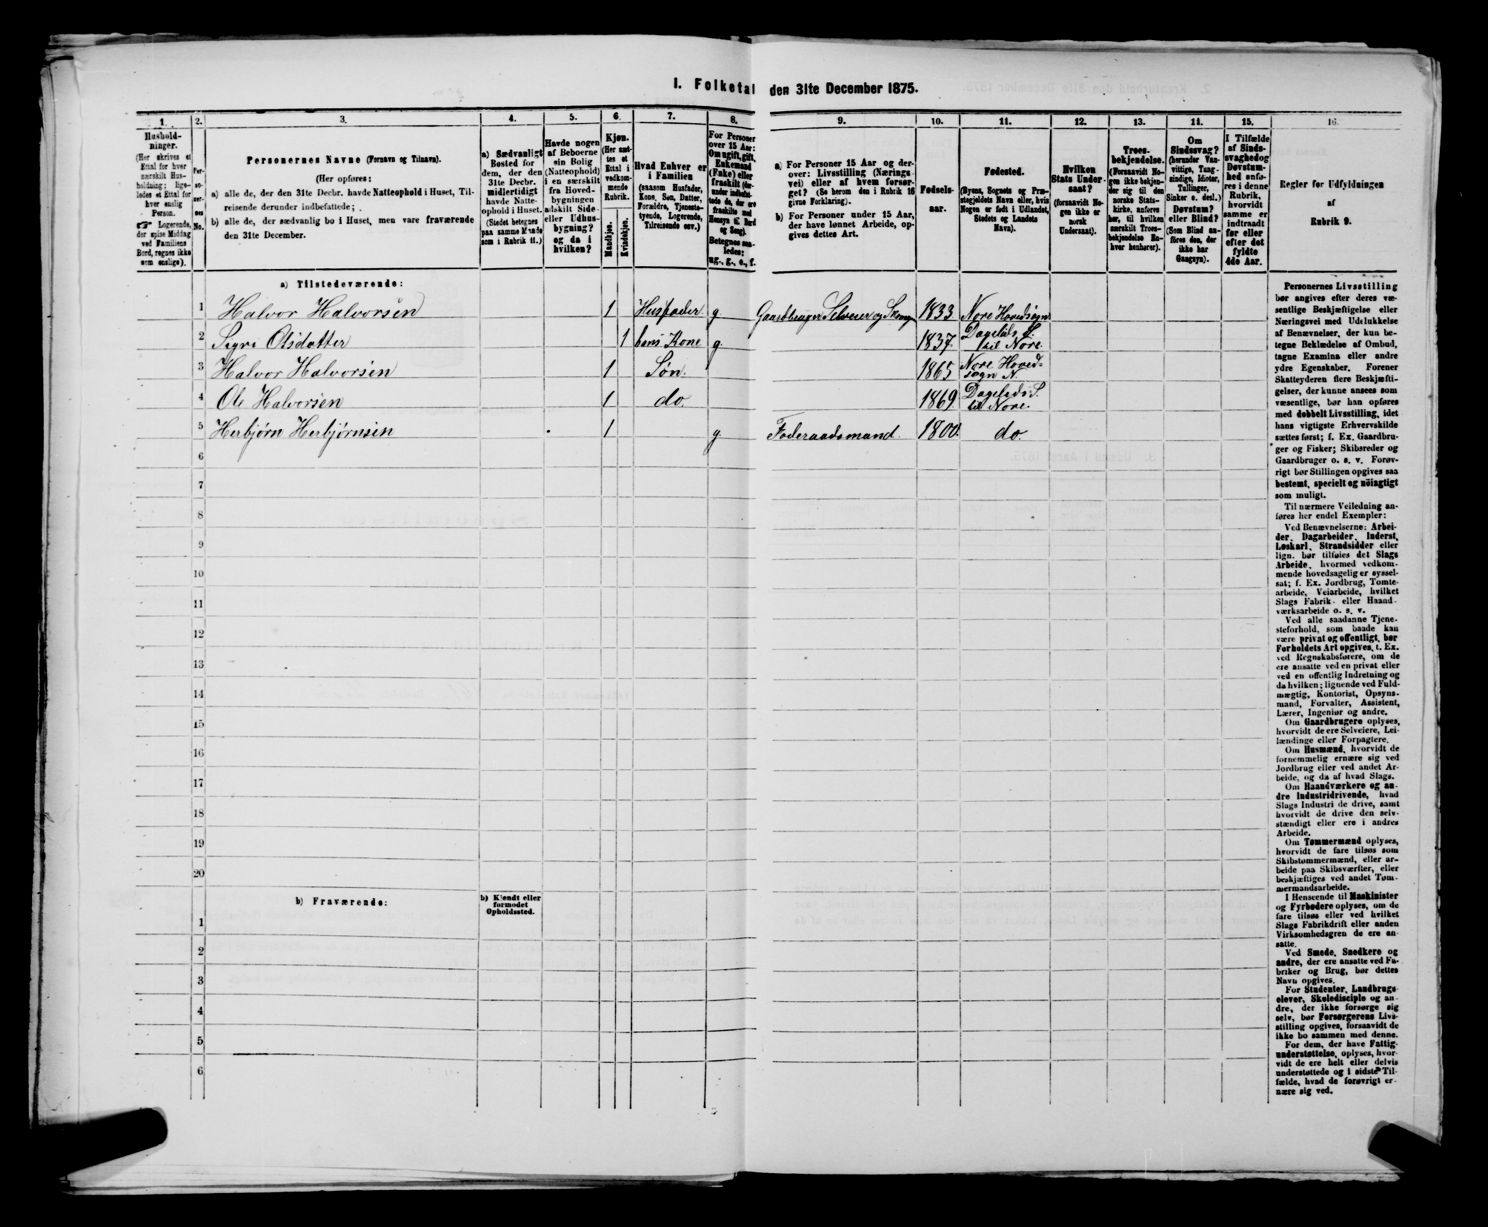 I. Folketal den 31te December 1875.
1.
Hushold-
ninger.
(Her skrives et
Ettal for hver
særskilt Hus-
holdning; lige-
ledes et Ettal for
hver enslig
Person.
Logerende,
der spise Middag
ved Familiens
Bord, regnes ikke
som enslige).
2.
Per-
so-
ner-
nes
No.
3.
Personernes Navne (Fornavn og Tilnavn).
(Her opføres:
a) alle de, der den 31te Decbr. havde Natteophold i Huset, Til-
reisende derunder indbefattede;
b) alle de, der sædvanlig bo i Huset, men vare fraværende
den 31te December.
4.
a) Sædvanligt
Bosted for
dem, der den
31te Decbr.
midlertidigt
havde Natte-
ophold i Huset.
(Stedet betegnes
paa samme Maade
som i Rubrik 11.)
5.
Havde nogen
af Beboerne
sin Bolig
(Natteophold)
i en særskilt
fra Hoved-
bygningen
adskilt Side-
eller Udhus-
bygning?
og da i
hvilken?
6.
Kjøn.
(Her sæt-
tes et
Ettal i
vedkom-
mende
Rubrik.
Mandkjøn.
Kvindekjøn.
7.
Hvad Enhver er
i Familien
(saasom Husfader,
Kone, Søn, Datter,
Forældre, Tjeneste-
tyende, Logerende,
Tilreisende osv.)
8.
For Personer
over 15 Aar:
Om ugift, gift,
Enkemand
(Enke) eller
fraskilt
Betegnes saa-
ledes:
ug., g., e., f.
9.
a) For Personer 15 Aar og der-
over: Livsstilling (Nærings-
vei) eller af hvem forsør-
get? (Se herom den i Rubrik 16
givne Forklaring).
b) For Personer under 15 Aar,
der have lønnet Arbeide, op-
gives dettes Art.
10.
Fødsels-
aar.
11.
Fødested.
(Byens, Sognets og Præ-
stegjeldets Navn eller, hvis
Nogen er født i Udlandet,
Stedets og Landets
Navn).
12.
Hvilken
Stats Under-
saat?
(forsaavidt No-
gen ikke er
norsk
Undersaat).
13.
Troes-
bekjendelse.
(Forsaavidt No-
gen ikke bekjen-
der sig til den
norske Stats-
kirke, anføres
her, til hvilken
særskilt Troes-
bekjendelse En-
hver henhører).
14.
Om
Sindssvag?
(herunder Van-
vittige, Tung-
sindige, Idioter,
Tullinger,
Sinker o. desl.)
Døvstum?
eller Blind?
(Som Blind an-
føres den, der
ikke har
Gangsyn).
15.
I Tilfælde
af Sinds-
svaghed og
Døvstum-
hed anfø-
res i denne
Rubrik,
hvorvidt
samme er
indtraadt
før eller
efter det
fyldte
4de Aar.
16.
Regler for Udfyldningen
af
Rubrik 9.
a) Tilstedeværende:
1 Halvor Halvorsen 1 Husfader g Gaardbruger Selveier og 1833 Nore Hovedsogn
2 Sigri Olsdatter 1 hans Kone g. 1837. Dagalids S. til Nore.
3 Halvor Halvorsen 1 Søn. 1865 Nore Hoved-sogn N.
4 Ole Halvorsen 1 do. 1869. Dagalids S. til Nore.
5 Herbjørn Herbjørnsen 1 g. Foderaadsmand. 1800. do.
6
7
8
9
10
11
12
13
14
15
16
17
18
19
20
b) Fraværende:
b) Kjendt eller
formodet
Opholdssted.
1
2
3
4
5
6
Personernes Livsstilling
bør angives efter deres væ-
sentlige Beskjæftigelse eller
Næringsvei med Udelukkelse
af Benævnelser, der kun be-
tegne Beklædelse af Ombud,
tagne Examina eller andre
ydre Egenskaber. Forener
Skatteyderen flere Beskjæfti-
gelser, der kunne ansees som
væsentlige, bør han opføres
med dobbelt Livsstilling, idet
hans vigtigste Erhvervskilde
sættes først; f. Ex. Gaardbru-
ger og Fisker; Skibsreder og
Gaardbruger o. s. v. Forøv-
rigt bør Stillingen opgives saa
bestemt, specielt og nöiagtigt
som muligt.
Til nærmere Veiledning an-
føres her endel Exempler:
Ved Benævnelserne: Arbei-
der, Dagarbeider, Inderst,
Løskarl, Strandsidder eller
lign. bør tilføies det Slags
Arbeide, hvormed vedkom-
mende hovedsagelig er syssel-
sat; f. Ex. Jordbrug, Tomte-
arbeide, Veiarbeide, hvilket
Slags Fabrik- eller Haand-
værksarbeide o. s. v.
Ved alle saadanne Tjene-
steforhold, som baade kan
være privat og offentligt, bør
Forholdets Art opgives, t. Ex.
ved Regnskabsførere, om de
ere ansatte ved en privat eller
ved en offentlig Indretning og
da hvilken; lignende ved Fuld-
mægtig, Kontorist, Opsyns-
mand, Forvalter, Assistent,
Lærer, Ingeniør og andre.
Om Gaardbrugere oplyses,
hvorvidt de ere Selveiere, Lei-
lændinge eller Forpagtere.
Om Husmænd, hvorvidt de
fornemmelig ernære sig ved
Jordbrug eller ved andet Ar-
beide, og da af hvad Slags.
Om Haandværkere og an-
dre Industridrivende, hvad
Slags Industri de drive, samt
hvorvidt de drive den selv-
stændigt eller ere i andres
Arbeide.
Om Tømmermænd oplyses,
hvorvidt de fare tilsøs som
Skibstømmermænd, eller ar-
beide paa Skibsværfter, eller
beskjæftiges ved andet Tøm-
mermandsarbeide.
I Henseende til Maskinister
og Fyrbødere oplyses, om de
fare tilsøs eller ved hvilket
Slags Fabrikdrift eller anden
Virksomhedsgren de ere an-
satte.
Ved Smede, Snedkere og
andre, der ere ansatte ved Fa-
briker og Brug, bør dettes
Navn opgives.
For Studenter, Landbrugs-
elever, Skoledisciple og an-
dre, der ikke forsørge sig
selv, bør Forsørgerens Livs-
stilling opgives, forsaavidt de
ikke bo sammen med denne.
For dem, der have Fattig-
understøttelse, oplyses, hvor-
vidt de ere helt eller delvis
understøttede og i sidste Til-
fælde, hvad de forøvrigt er-
nære sig ved.